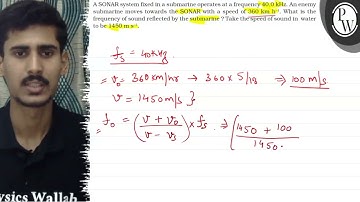 A SONAR system fixed in a submarine operates at a frequency 40.0 kHz. An enemy
submarine moves towards the SONAR with a speed of 360 km h⁻¹. What is the
frequency of sound reflected by the submarine ? Take the speed of sound in water
to be 1450 m s⁻¹.
PW
fs = 40KHz
= v₀ = 360 km/hr → 360 × 5/18 ⇒ 100 m/s
v = 1450 m/s }
= f₀ = (v + v₀ / v - vs) × fs ⇒ [1450 + 100 / 1450.
ysics Wallah